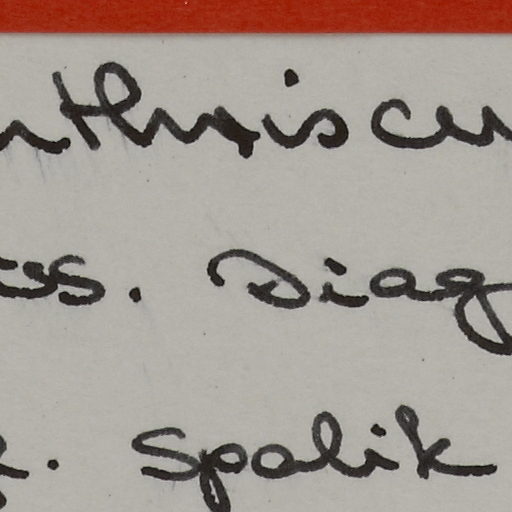 nthriscu
ss. Diag
. Spalik